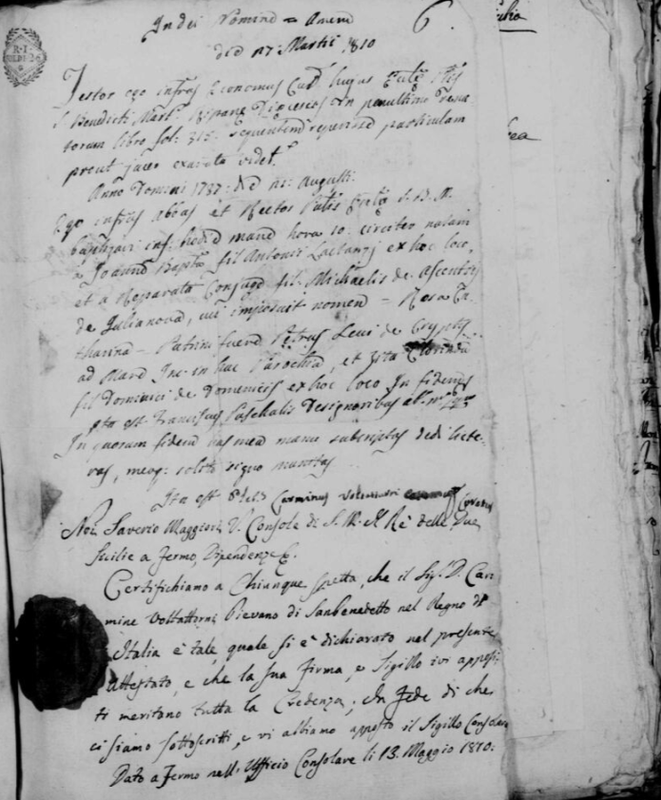 In Dei Nomine = Amen
6.
die 17: Martii 1810
R. I.
Testor ego infrus Economus Curs hujus Eccle Plis
S. Benedicti Mart: Ripane Diocesis In penultimo
torum libro fol: 315: sequentem reperisse particulam
prout jacet exarata videt
Anno Domini 1787: Die 21: Augusti:
Ego infrus Abbas et Rector Pulis Eccle S. B. M.
baptizavi inf: hodie mane hora 10. circiter natam
a Joanne Bapta fil Antonii Latanzj ex hoc loco,
et a Reparata Conjuge fil: Michaelis de Ascentiis
de Julianova, cui imposuit nomen = Rosa Ca=
tharina = Patrini fuere Petrus Leui de Cryptis
ad Mare Inc: in hac Parochia, et Zita Clorinda
fil Dominici de Domenicis ex hoc loco In fidem
Ita est Franciscus Paschalis Designoribus
In quorum fidem has mea manu subscriptas dedi litte=
ras, meoq: solito signo munitas
Ita est Carminus Voltattorni Curatus
Noi Saverio Maggiori V. Console di S. M. il Rè delle Due
Sicilie a Fermo, Dipendenze
Certifichiamo a Chiunque spetta, che il Sig. D. Car=
mine Voltattorni Pievano di Sanbenedetto nel Regno d'
Italia è tale, quale si è dichiarato nel presente
Attestato, e che la sua Firma, e Sigillo ivi apposti,
ti meritano tutta la Credenza; In Fede di che
ci siamo sottoscritti, e vi abbiamo apposto il Sigillo Consolare
Dato a Fermo nell' Ufficio Consolare li 13. Maggio 1810: